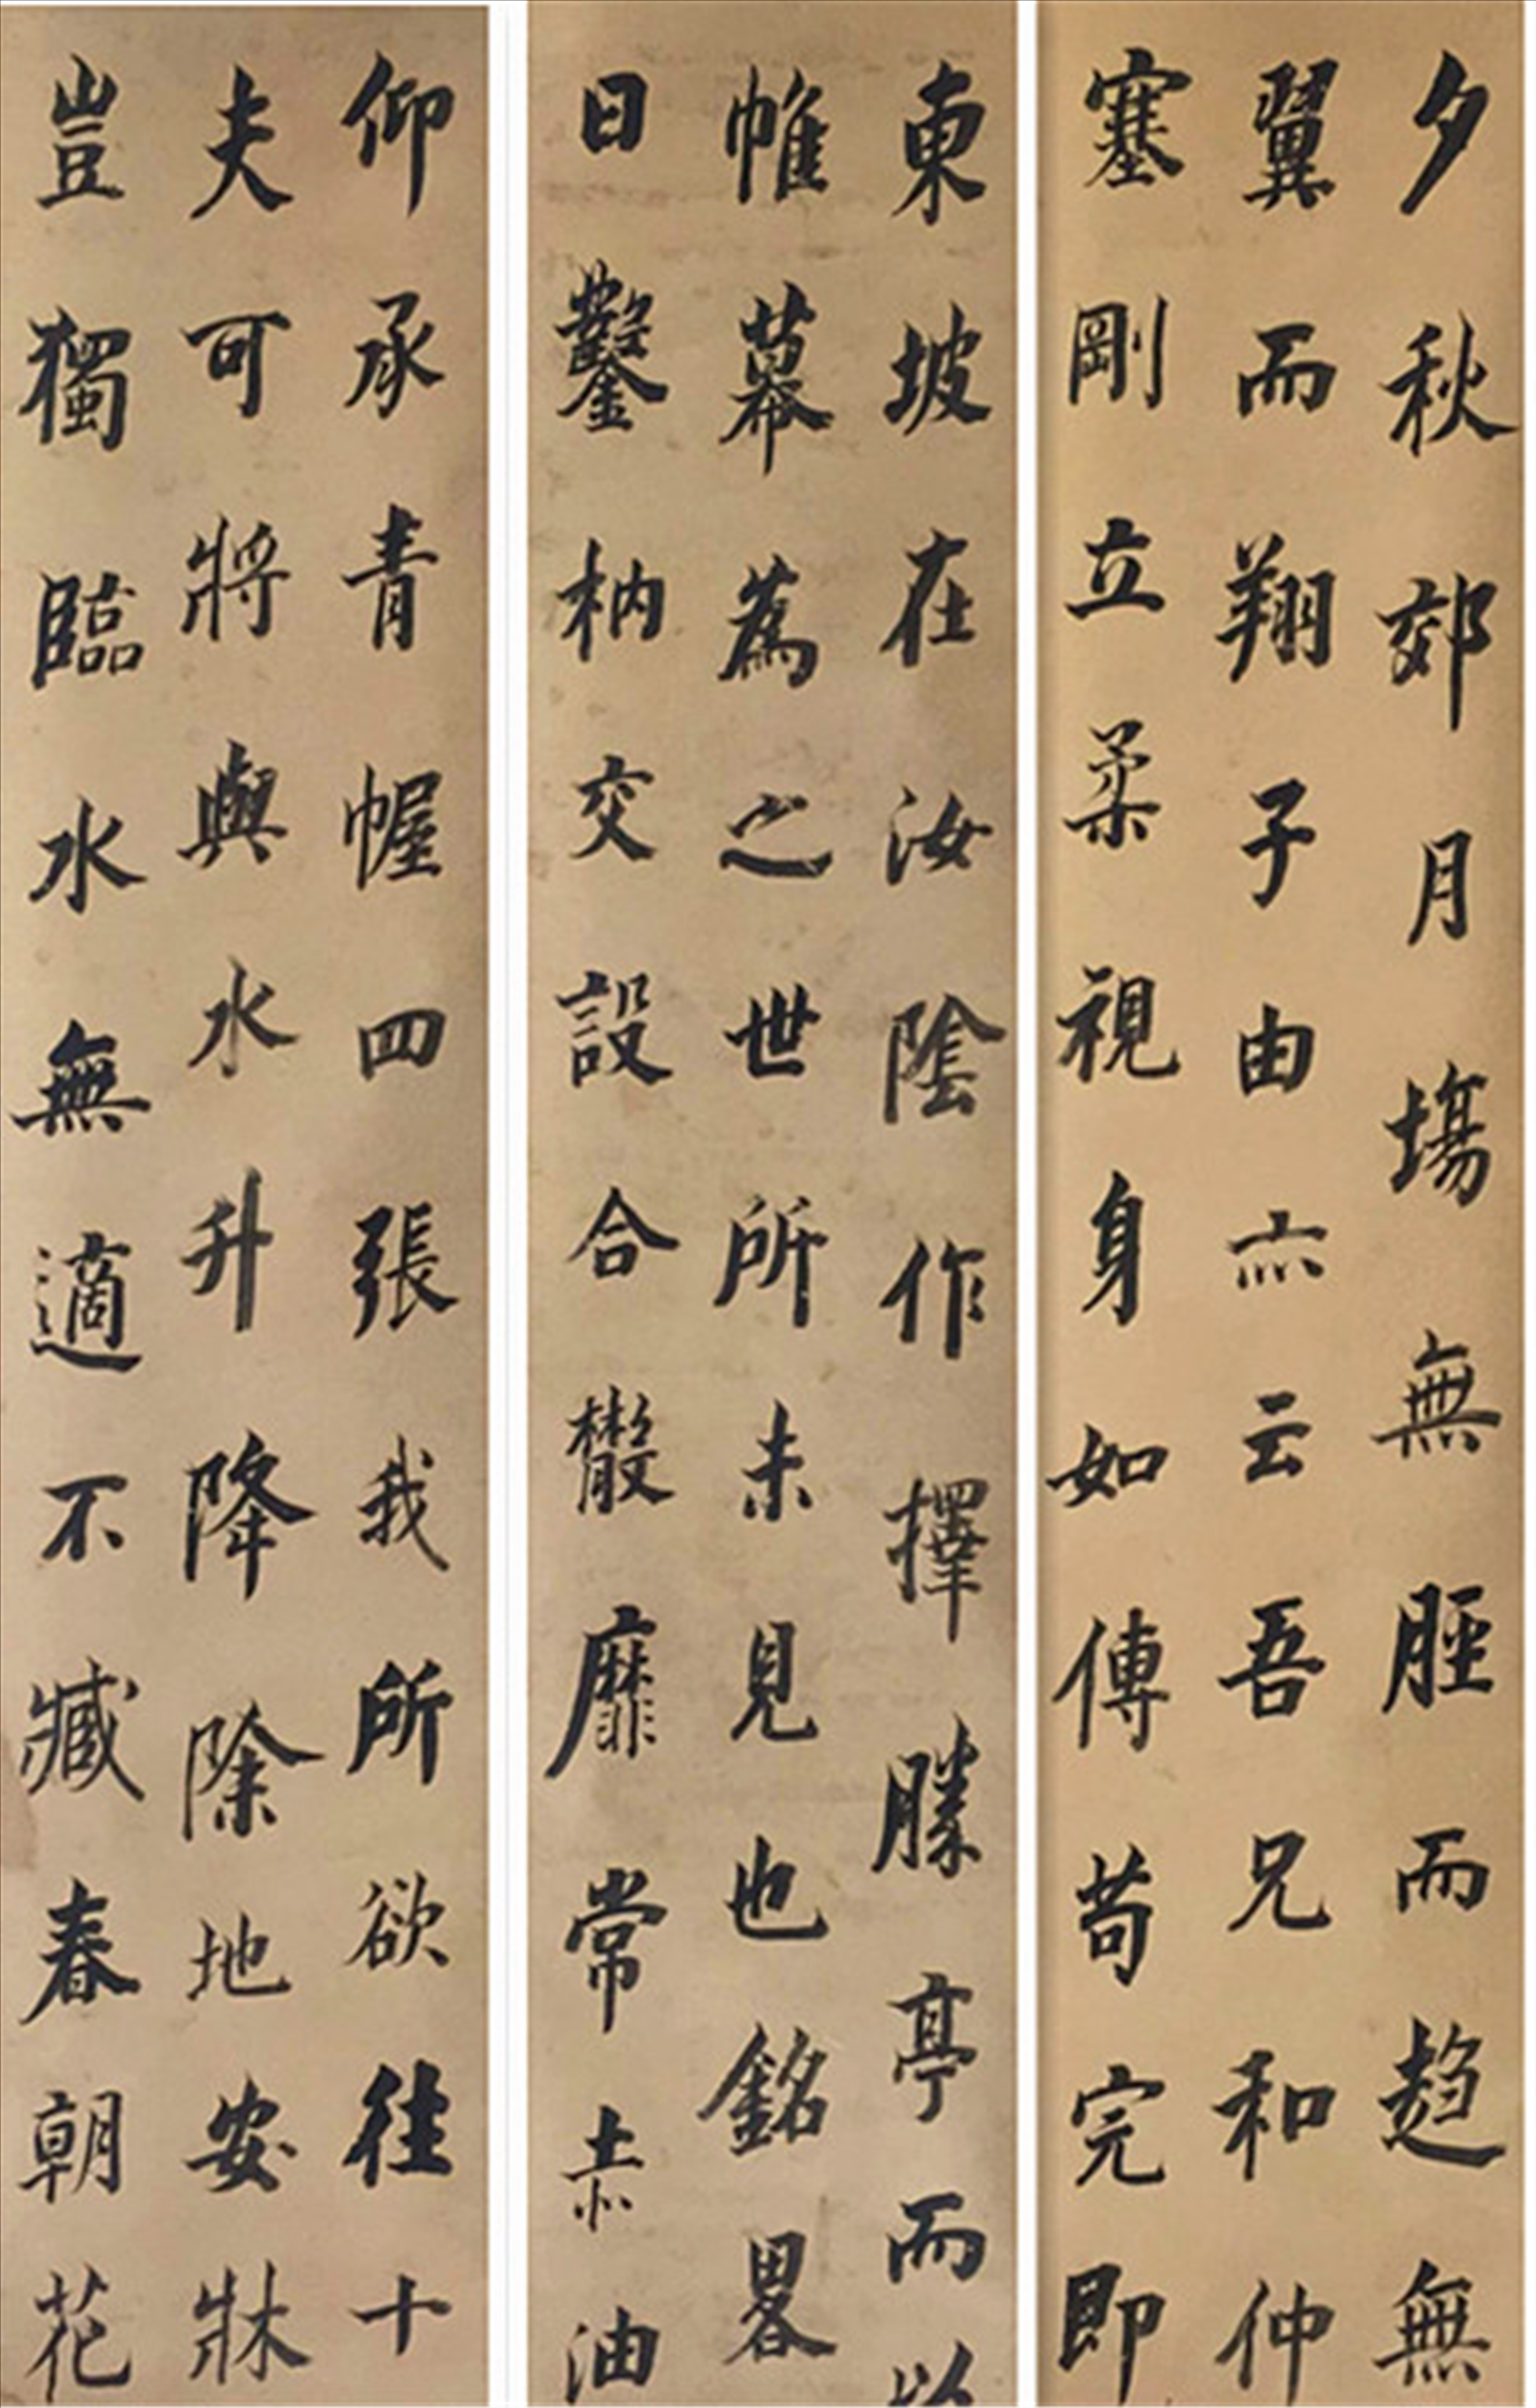 夕秋郊月場無脛而趍無
翼而翔子由亦云吾兄和仲
塞剛立柔視身如傳苟完即
東坡在汝陰作擇勝亭而以
帷幕為之世所未見也銘畧
日鑿枘交設合散靡常赤油
仰承青幄四張我所欲往十
夫可將與水升降除地安牀
豈獨臨水無適不臧春朝花